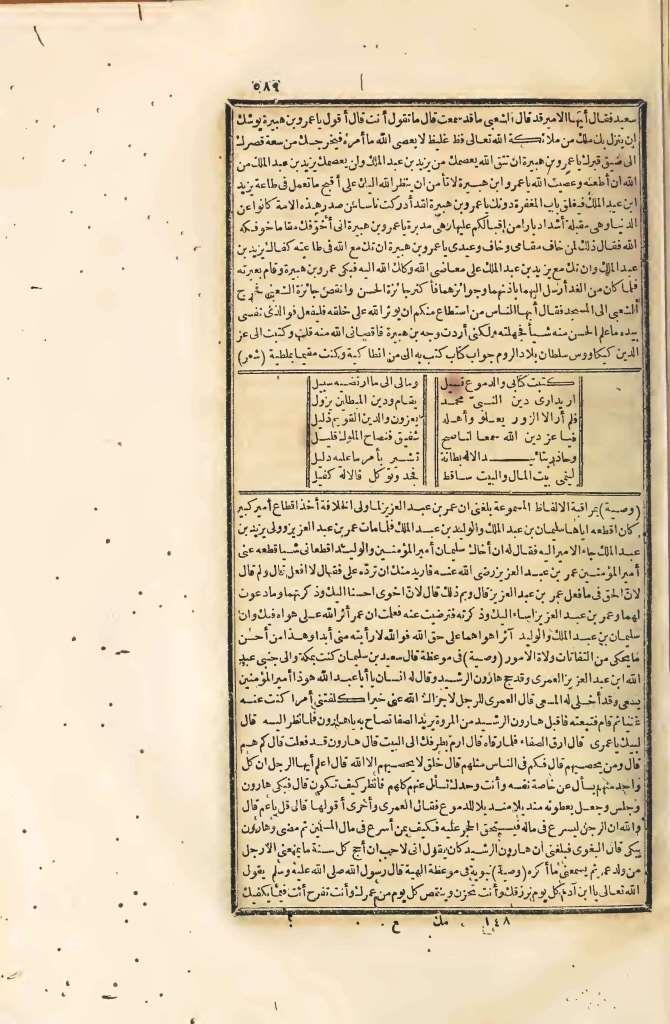 ٥٨٩
سعيد فقال أيها الامير قد قال الشعبي ما قد سمعت قال ما تقول أنت قال أقول يا عمرو بن هبيرة يوشك
ان ينزل بك ملك من ملائكة الله تعالى فظ غليظ لا يعصى الله ما أمره فيخرجك من سعة قصرك
الى ضيق قبرك يا عمرو بن هبيرة ان تتق الله يعصمك من يزيد بن عبد الملك ولن يعصمك يزيد بن عبد الملك من
الله ان أطعته وعصيت الله يا عمرو ابن هبيرة لا تأمن ان ينظر الله اليك على أقبح ما تعمل فى طاعة يزيد
ابن عبد الملك فيغلق باب المغفرة دونك يا عمرو بن هبيرة لقد أدركت ناسا من صدر هذه الامة كانوا عن
الدنيا وهى مقبلة أشد ادبارا من اقبالكم عليها وهى مدبرة يا عمرو بن هبيرة انى أخوفك مقاما خوفكه
الله فقال ذلك لمن خاف مقامى وخاف وعيدى يا عمرو بن هبيرة ان تك مع الله فى طاعته كفاك يزيد بن
عبد الملك وان تك مع يزيد بن عبد الملك على معاصى الله وكلك الله اليه فبكى عمرو بن هبيرة وقام بعبرته
فلما كان من الغد أرسل اليهما باذنهما وجوائزهما فأكثر جائزة الحسن وانقص جائزة الشعبى فخرج
الشعبى الى المسجد فقال أيها الناس من استطاع منكم ان يوثر الله على خلقه فليفعل فوالذى نفسى
بيده ما علم الحسن منه شيأ فجهلته ولكنى أردت وجه بن هبيرة فأقصانى الله منه قلت وكتبت الى عز
الدين كيكاووس سلطان بلاد الروم جواب كتاب كتب به الى من انطاكية وكنت مقيما بملطية (شعر)
كتبت كتابى والدموع تسيل ومالى الى ما أرتضيه سبيل
اريد أرى دين النبى محمد يقام ودين المبطلين يزول
فلم أر الا الزور يعلو وأهله يعزون والدين القويم ذليل
فيا عز دين الله سمعا لناصح شفيق فنصاح الملوك قليل
وحاذر بتأييد الاله بطانة تشير بأمر ما عليه دليل
لينمى بيت المال والبيت ساقط فجد وتوكل فالاله كفيل
(وصية) بمراقبة الالفاظ المسموعة بلغنى ان عمر بن عبد العزيز لما ولى الخلافة أخذ اقطاع أمير كبير
كان اقطعه اياها سليمان بن عبد الملك والوليد بن عبد الملك فلما مات عمر بن عبد العزيز وولى يزيد بن
عبد الملك جاء الامير اليه فقال له ان أخاك سليمان أمير المؤمنين والوليد اقطعانى شيا قطعه عنى
أمير المؤمنين عمر بن عبد العزيز رضى الله عنه فاريد منك ان ترده على فقال لا افعل قال ولم قال
لان الحق فى ما فعل عمر بن عبد العزيز قال وبم ذلك قال لان اخوى احسنا اليك وذكرتهما وما دعوت
لهما وعمر بن عبد العزيز اساء اليك وذكرته فترضيت عنه فعلمت ان عمر أثر الله على هواه فيك وان
سليمان بن عبد الملك والوليد آثرا هواهما على حق الله فوالله لا رأيته منى أبدا وهذا من أحسن
ما يحكى من التفاتات ولاة الامور (وصية) فى موعظة قال سعيد بن سليمان كنت بمكة والى جنبى عبد
الله ابن عبد العزيز العمرى وقد حج هارون الرشيد وقال له انسان يا أبا عبد الله هوذا أمير المؤمنين
يسعى وقد أخلى له المسعى قال العمرى للرجل لا جزاك الله عنى خيرا كلفتنى أمرا كنت عنه
غنيا ثم قام فتبعته فاقبل هارون الرشيد من المروة يريد الصفا فصاح به يا هارون فلما نظر اليه قال
لبيك يا عمرى قال ارق الصفاء فلما رقاه قال ارم بطرفك الى البيت قال هارون قد فعلت قال كم هم
قال ومن يحصيهم قال فكم فى الناس مثلهم قال خلق لا يحصيهم الا الله قال اعلم أيها الرجل ان كل
واحد منهم يسأل عن خاصة نفسه وأنت وحدك تسأل عنهم كلهم فانظر كيف تكون قال فبكى هارون
وجلس وجعل يعطونه منديلا منديلا للدموع فقال العمرى وأخرى أقولها قال قل يا عم قال
والله ان الرجل ليسرع فى ماله فيستحق الحجر عليه فكيف بمن أسرع فى مال المسلمين ثم مضى وهارون
يبكى قال البغوى فبلغنى ان هارون الرشيد كان يقول انى لاحب ان أحج كل سنة ما يمنعنى الا رجل
من ولد عمر ثم يسمعنى ما أكره (وصية) نبوية فى موعظة الهية قال رسول الله صلى الله عليه وسلم يقول
الله تعالى يا ابن آدم كل يوم يرزقك وأنت تحزن وينقص كل يوم من عمرك وأنت تفرح أنت فيما يكفيك
١٤٨ مك ع